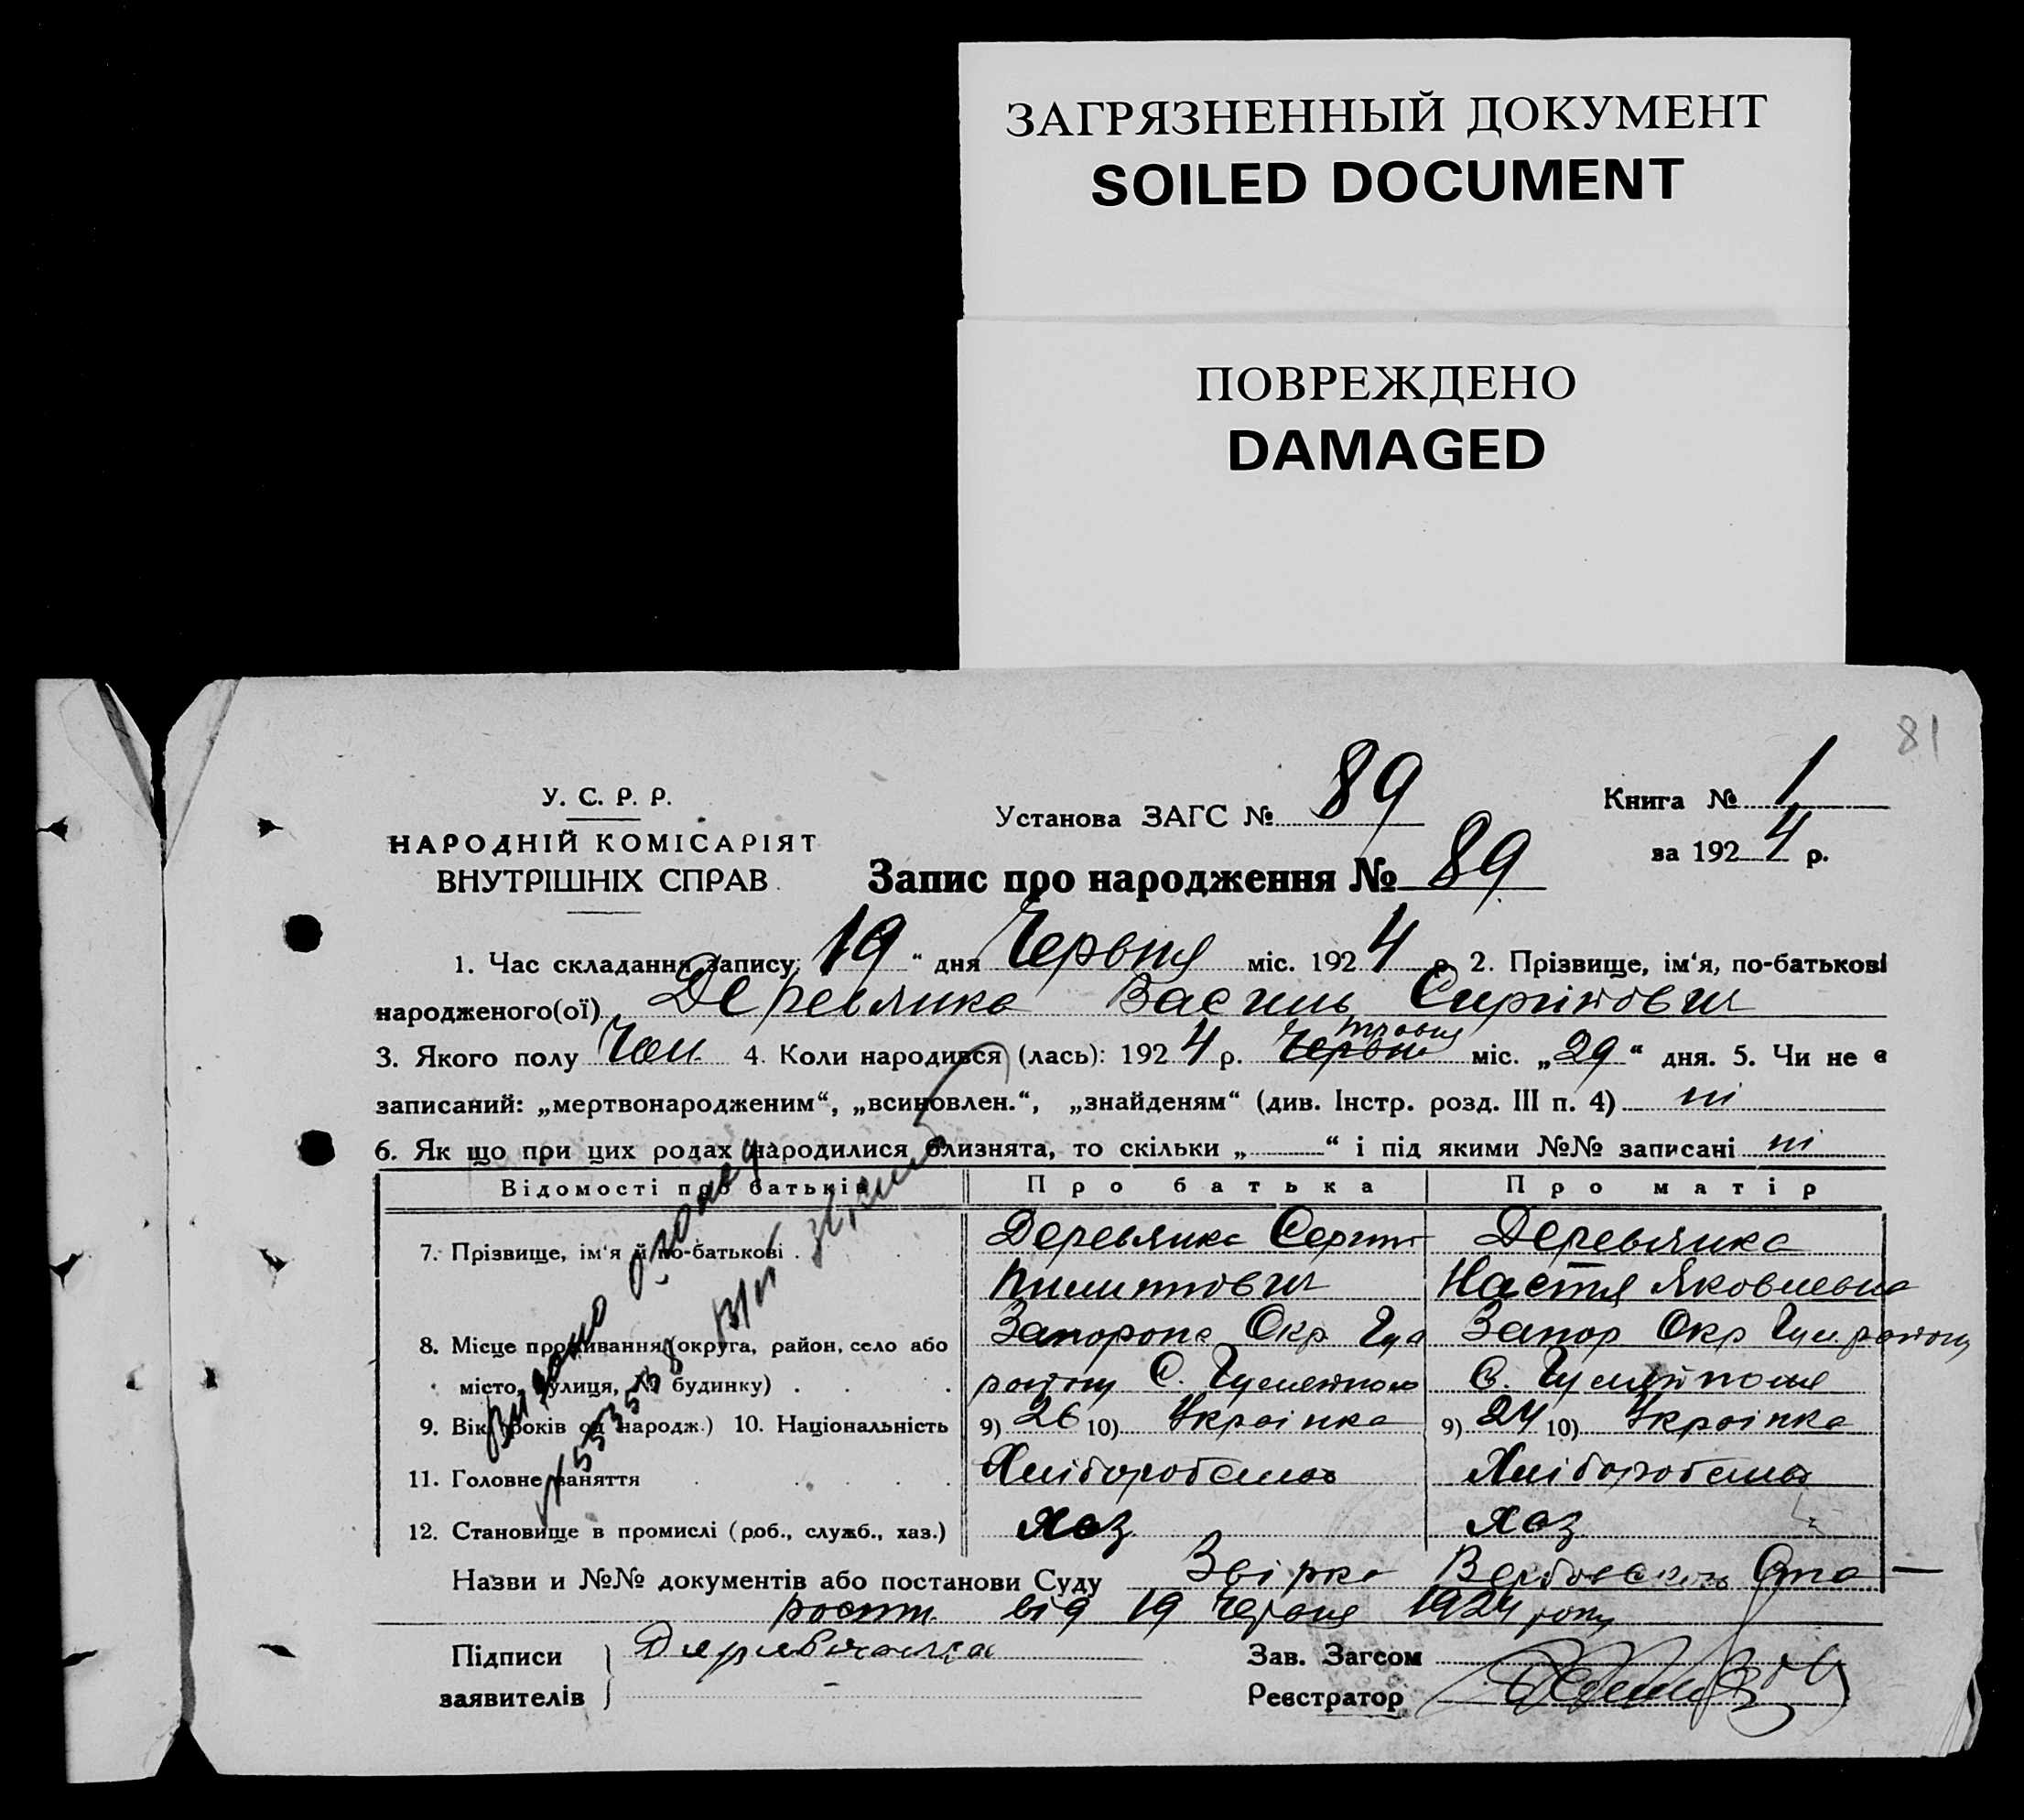 ЗАГРЯЗНЕННЫЙ ДОКУМЕНТ
SOILED DOCUMENT
ПОВРЕЖДЕНО
DAMAGED
81
У. С. Р. Р.
НАРОДНІЙ КОМІСАРІЯТ
ВНУТРІШНІХ СПРАВ
Установа ЗАГС № 89
Книга № 1
за 1924 р.
Запис про народження № 89
1. Час складання запису: 19 “ дня Червня міс. 1924 р. 2. Прізвище, ім‘я, по-батькові
народженого(ої) Деревянко Василь
3. Якого полу Чол. 4. Коли народився (лась): 1924 р. травня міс. „29“ дня. 5. Чи не є
записаний: „мертвонародженим“, „всиновлен.“, „знайденям“ (див. Інстр. розд. III п. 4) ні
6. Як що при цих родах народилися близнята, то скільки „ “ і під якими №№ записані ні
Відомості про батьків Про батька Про матір
7. Прізвище, ім‘я й по-батькові . Деревянко Сергій Деревянко
Пилипович Настя Яковлевна
8. Місце проживання (округа, район, село або Запорож Окр. Гул Запор Окр Гул. району
місто, вулиця, № будинку) . . . району С. Гуляйполе С. Гуляйполе
9. Вік (років од народж.) 10. Національність 9) 26 10) Українка 9) 24 10) Українка
11. Головне заняття . . . . . Хлібороб Хлібороб
12. Становище в промислі (роб., служб., хаз.) Хоз. Хоз.
Назви и №№ документів або постанови Суду Ста—
рости від 19 Червня 1924 року
Підписи
заявителів
Зав. Загсом
Реєстратор
Видано